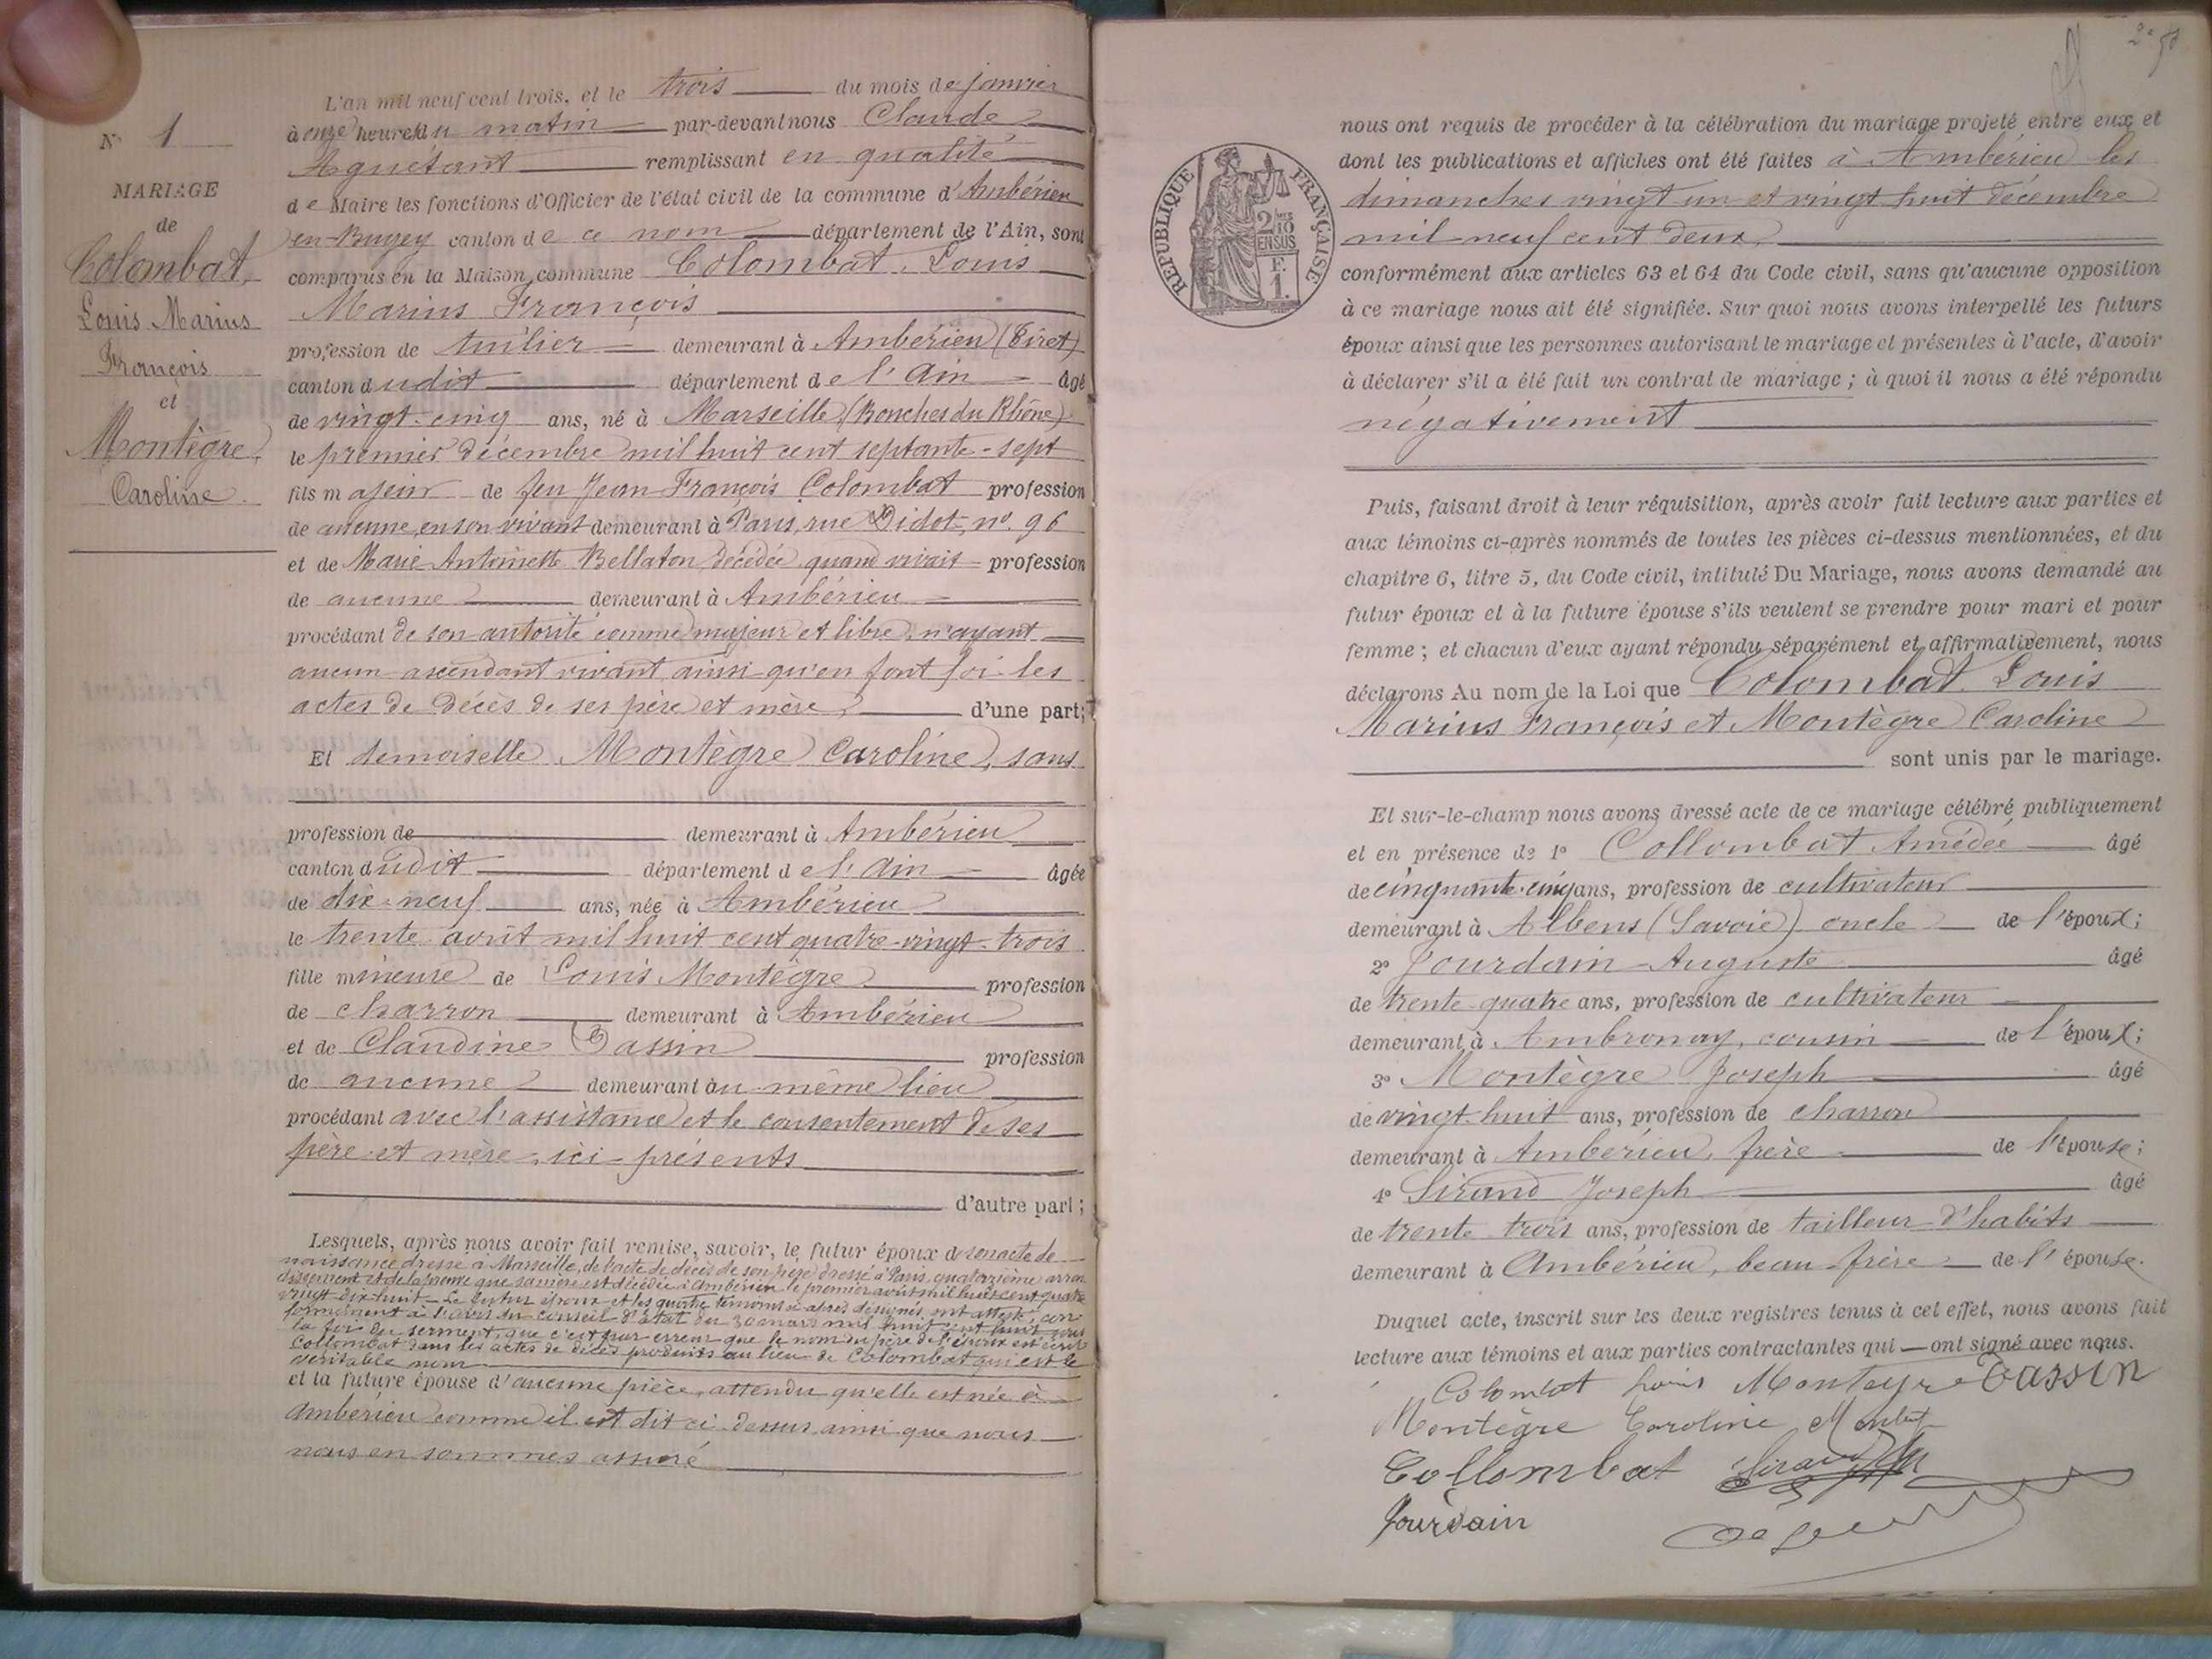 N° 1
MARIAGE
de
Colombat,
Louis Marius
François
et
Montègre,
Caroline.
L'an mil neuf cent trois, et le trois du mois de janvier
à onze heures du matin par-devant nous Claude
Aguétant remplissant en qualité
de Maire les fonctions d'Officier de l'état civil de la commune d'Ambérieu
en-Bugey canton de ce nom département de l'Ain, sont
comparus en la Maison commune Colombat, Louis
Marius François
profession de tuilier demeurant à Ambérieu (Tiret)
canton dudit département de l'Ain âgé
de vingt-cinq ans, né à Marseille (Bouches du Rhône)
le premier décembre mil huit cent septante-sept
fils majeur de feu Jean François Colombat profession
de aucune, en son vivant demeurant à Paris, rue Didot, n°. 96
et de Marie Antoinette Bellaton décédée, quand vivait profession
de aucune demeurant à Ambérieu
procédant de son autorité comme majeur et libre, n'ayant
aucun ascendant vivant ainsi qu'en font foi les
actes de décès de ses père et mère, d'une part;
Et demoiselle Montègre Caroline, sans
profession de demeurant à Ambérieu
canton dudit département de l'Ain âgée
de dix-neuf ans, née à Ambérieu
le trente août mil huit cent quatre-vingt-trois
fille mineure de Louis Montègre profession
de charron demeurant à Ambérieu
et de Claudine Tassin profession
de aucune demeurant au même lieu
procédant avec l'assistance et le consentement de ses
père et mère, ici présents
d'autre part;
Lesquels, après nous avoir fait remise, savoir, le futur époux de son acte de
naissance dressé à Marseille, de l'acte de décès de son père dressé à Paris, quatorzième arron
dissement et de la preuve que sa mère est décédée à Ambérieu le premier août mil huit cent quatre
vingt dix huit – Le futur époux et les quatre témoins ci après désignés ont attesté, con
formément à l'avis du conseil d'état du 30 mars mil huit cent huit sous
la foi du serment, que c'est par erreur que le nom du père de l'époux est écrit
Collombat dans les actes de décès produits au lieu de Colombat qui est le
véritable nom
et la future épouse d'aucune pièce, attendu qu'elle est née à
Ambérieu comme il est dit ci-dessus ainsi que nous
nous en sommes assuré
nous ont requis de procéder à la célébration du mariage projeté entre eux et
dont les publications et affiches ont été faites à Ambérieu les
dimanches vingt un et vingt huit décembre
mil neuf cent deux,
RÉPUBLIQUE FRANÇAISE
2/10
EN SUS
F.
1.
conformément aux articles 63 et 64 du Code civil, sans qu'aucune opposition
à ce mariage nous ait été signifiée. Sur quoi nous avons interpellé les futurs
époux ainsi que les personnes autorisant le mariage et présentes à l'acte, d'avoir
à déclarer s'il a été fait un contrat de mariage; à quoi il nous a été répondu
négativement
Puis, faisant droit à leur réquisition, après avoir fait lecture aux parties et
aux témoins ci-après nommés de toutes les pièces ci-dessus mentionnées, et du
chapitre 6, titre 5, du Code civil, intitulé Du Mariage, nous avons demandé au
futur époux et à la future épouse s'ils veulent se prendre pour mari et pour
femme; et chacun d'eux ayant répondu séparément et affirmativement, nous
déclarons Au nom de la Loi que Colombat Louis
Marius François et Montègre Caroline
sont unis par le mariage.
Et sur-le-champ nous avons dressé acte de ce mariage célébré publiquement
et en présence de 1° Collombat Amédée âgé
de cinquante-cinq ans, profession de cultivateur
demeurant à Albens (Savoie) oncle de l'époux;
2° Jourdain Auguste âgé
de trente-quatre ans, profession de cultivateur
demeurant à Ambronay, cousin de l'époux;
3° Montègre Joseph âgé
de vingt-huit ans, profession de charron
demeurant à Ambérieu, frère de l'épouse;
4° Sirand Joseph âgé
de trente trois ans, profession de tailleur d'habits
demeurant à Ambérieu, beau-frère de l'épouse.
Duquel acte, inscrit sur les deux registres tenus à cet effet, nous avons fait
lecture aux témoins et aux parties contractantes qui — ont signé avec nous.
Colombat Louis Montegre Tassin
Montègre Caroline
Collombat Sirand
Jourdain